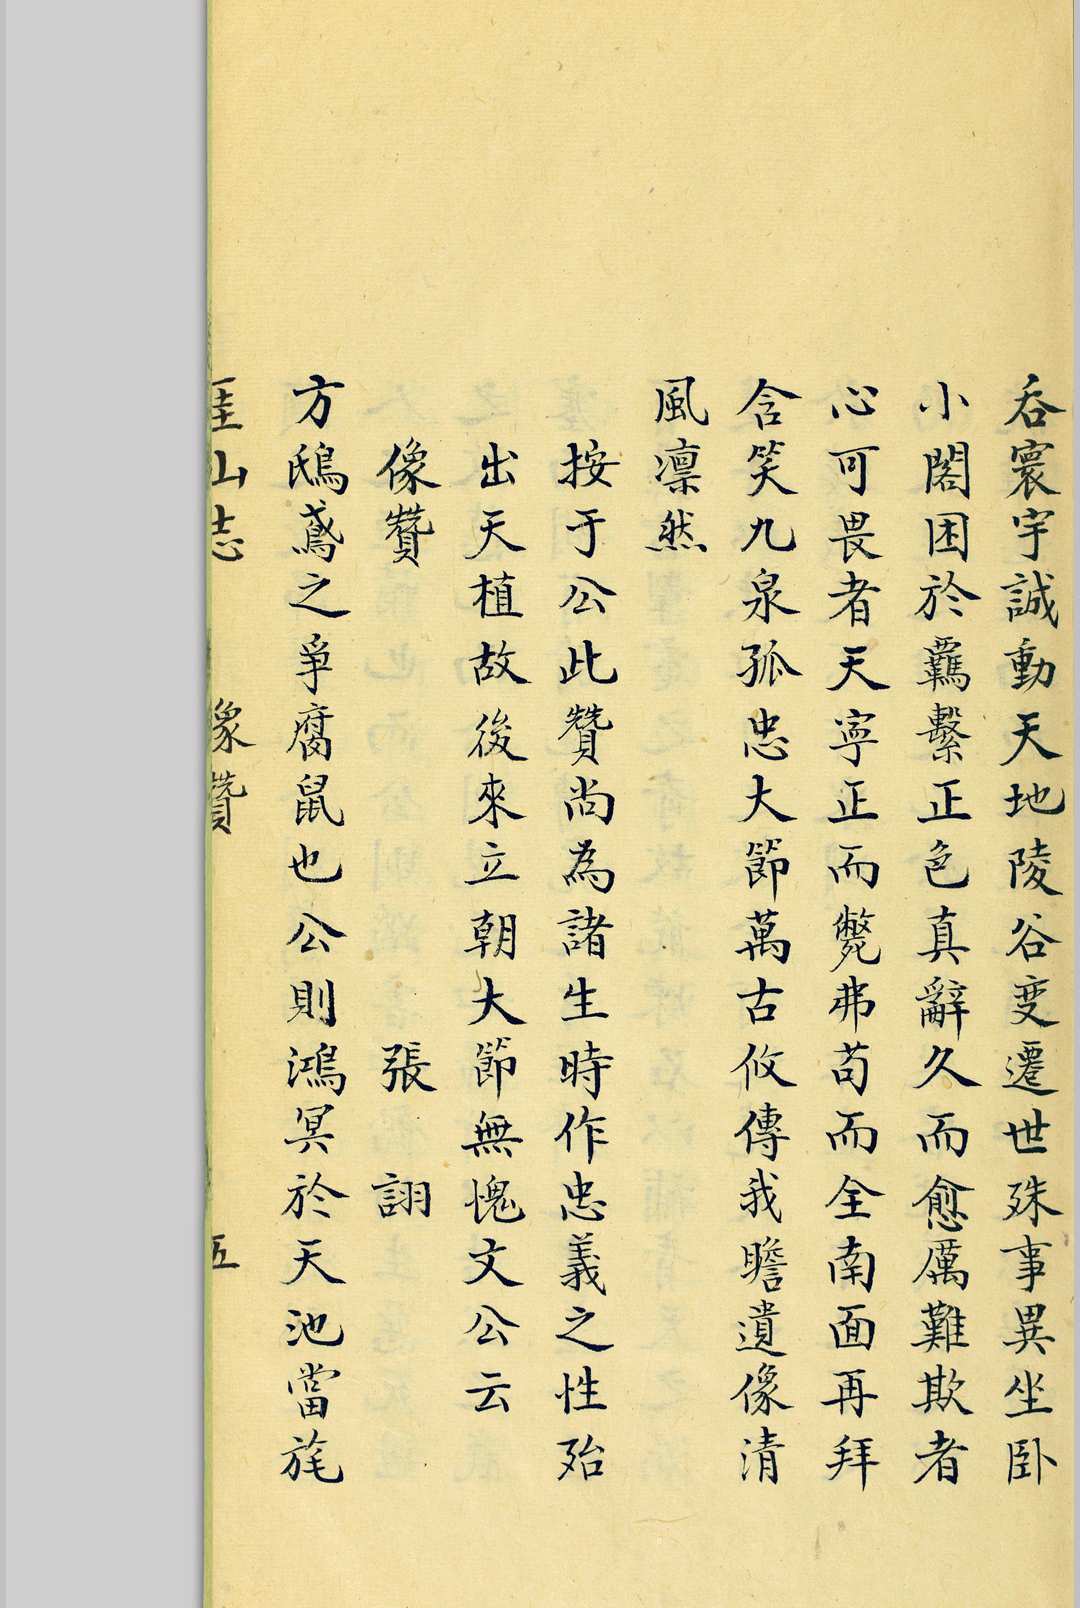 吞寰宇誠動天地陵谷变遷世殊事異坐卧
小閣困於羈繫正色真辭久而愈厲難欺者
心可畏者天寧正而斃弗苟而全南面再拜
含笑九泉孤忠大節萬古攸傳我瞻遺像清
風凛然
按于公此贊尚為諸生時作忠義之性殆
出天植故後來立朝大節無愧文公云
像贊 張 詡
方鴟鳶之爭腐鼠也公則鴻冥於天池當旄
厓山志 像贊 五